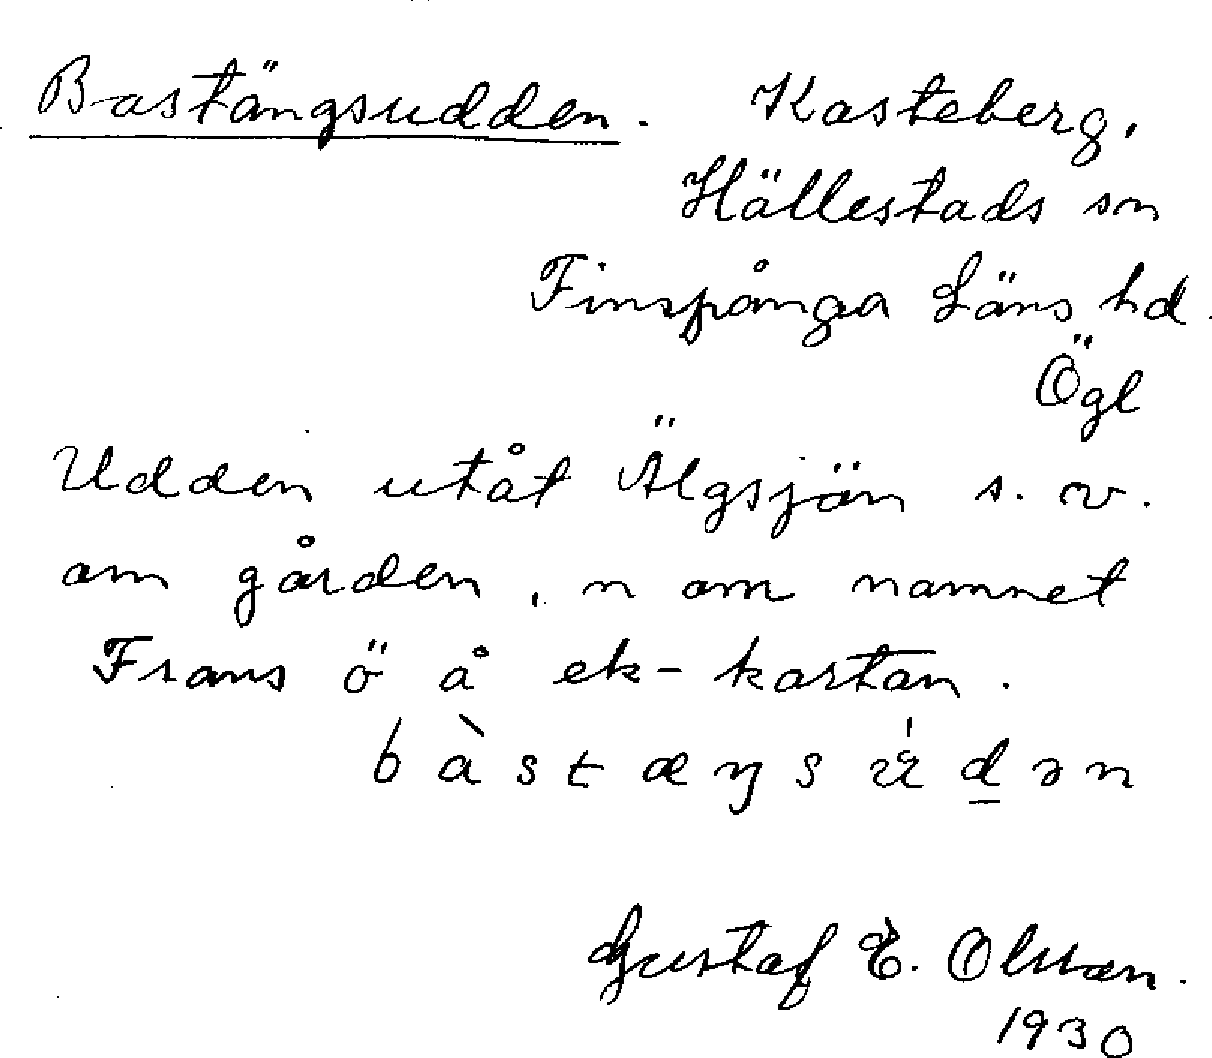 Bastängsudden. Kasteberg,
Hällestads sn
Finspånga Läns hd.
Ögl
Udden utåt Älgsjön s. v.
om gården, n om namnet
Frans ö å ek-kartan.
bàstæŋsʉ́d̲ən
Gustaf E. Olsson.
1930